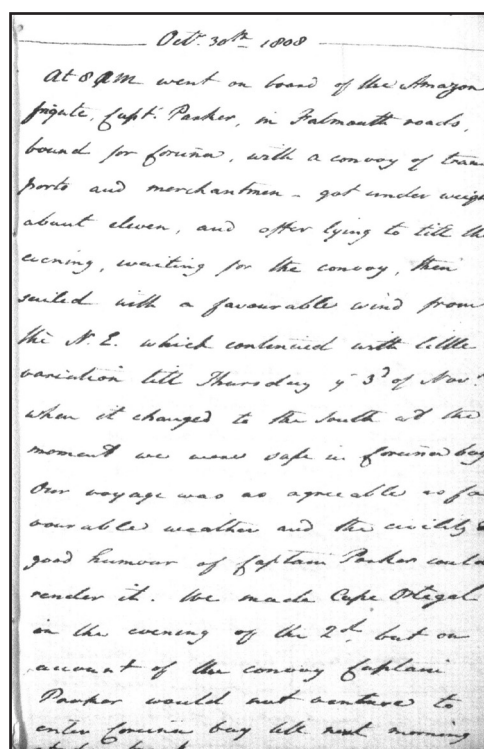 Octr. 30th 1808
At 8 AM went on board of the Amazon
frigate, Capt. Parker, in Falmouth roads,
bound for Coruña, with a convoy of trans
ports and merchantmen - got under weigh
about eleven, and after lying to till the
evening, waiting for the convoy, then
sailed with a favourable wind from
the N. E. which continued with little
variation till Thursday ye 3d of Novr.
when it changed to the South at the
moment we were safe in Coruña bay
Our voyage was as agreeable as fa
vourable weather and the civility &
good humour of Captain Parker could
render it. We made Cape Ortegal
in the evening of the 2d but on
account of the convoy Captain
Parker would not venture to
enter Coruña bay till next morning